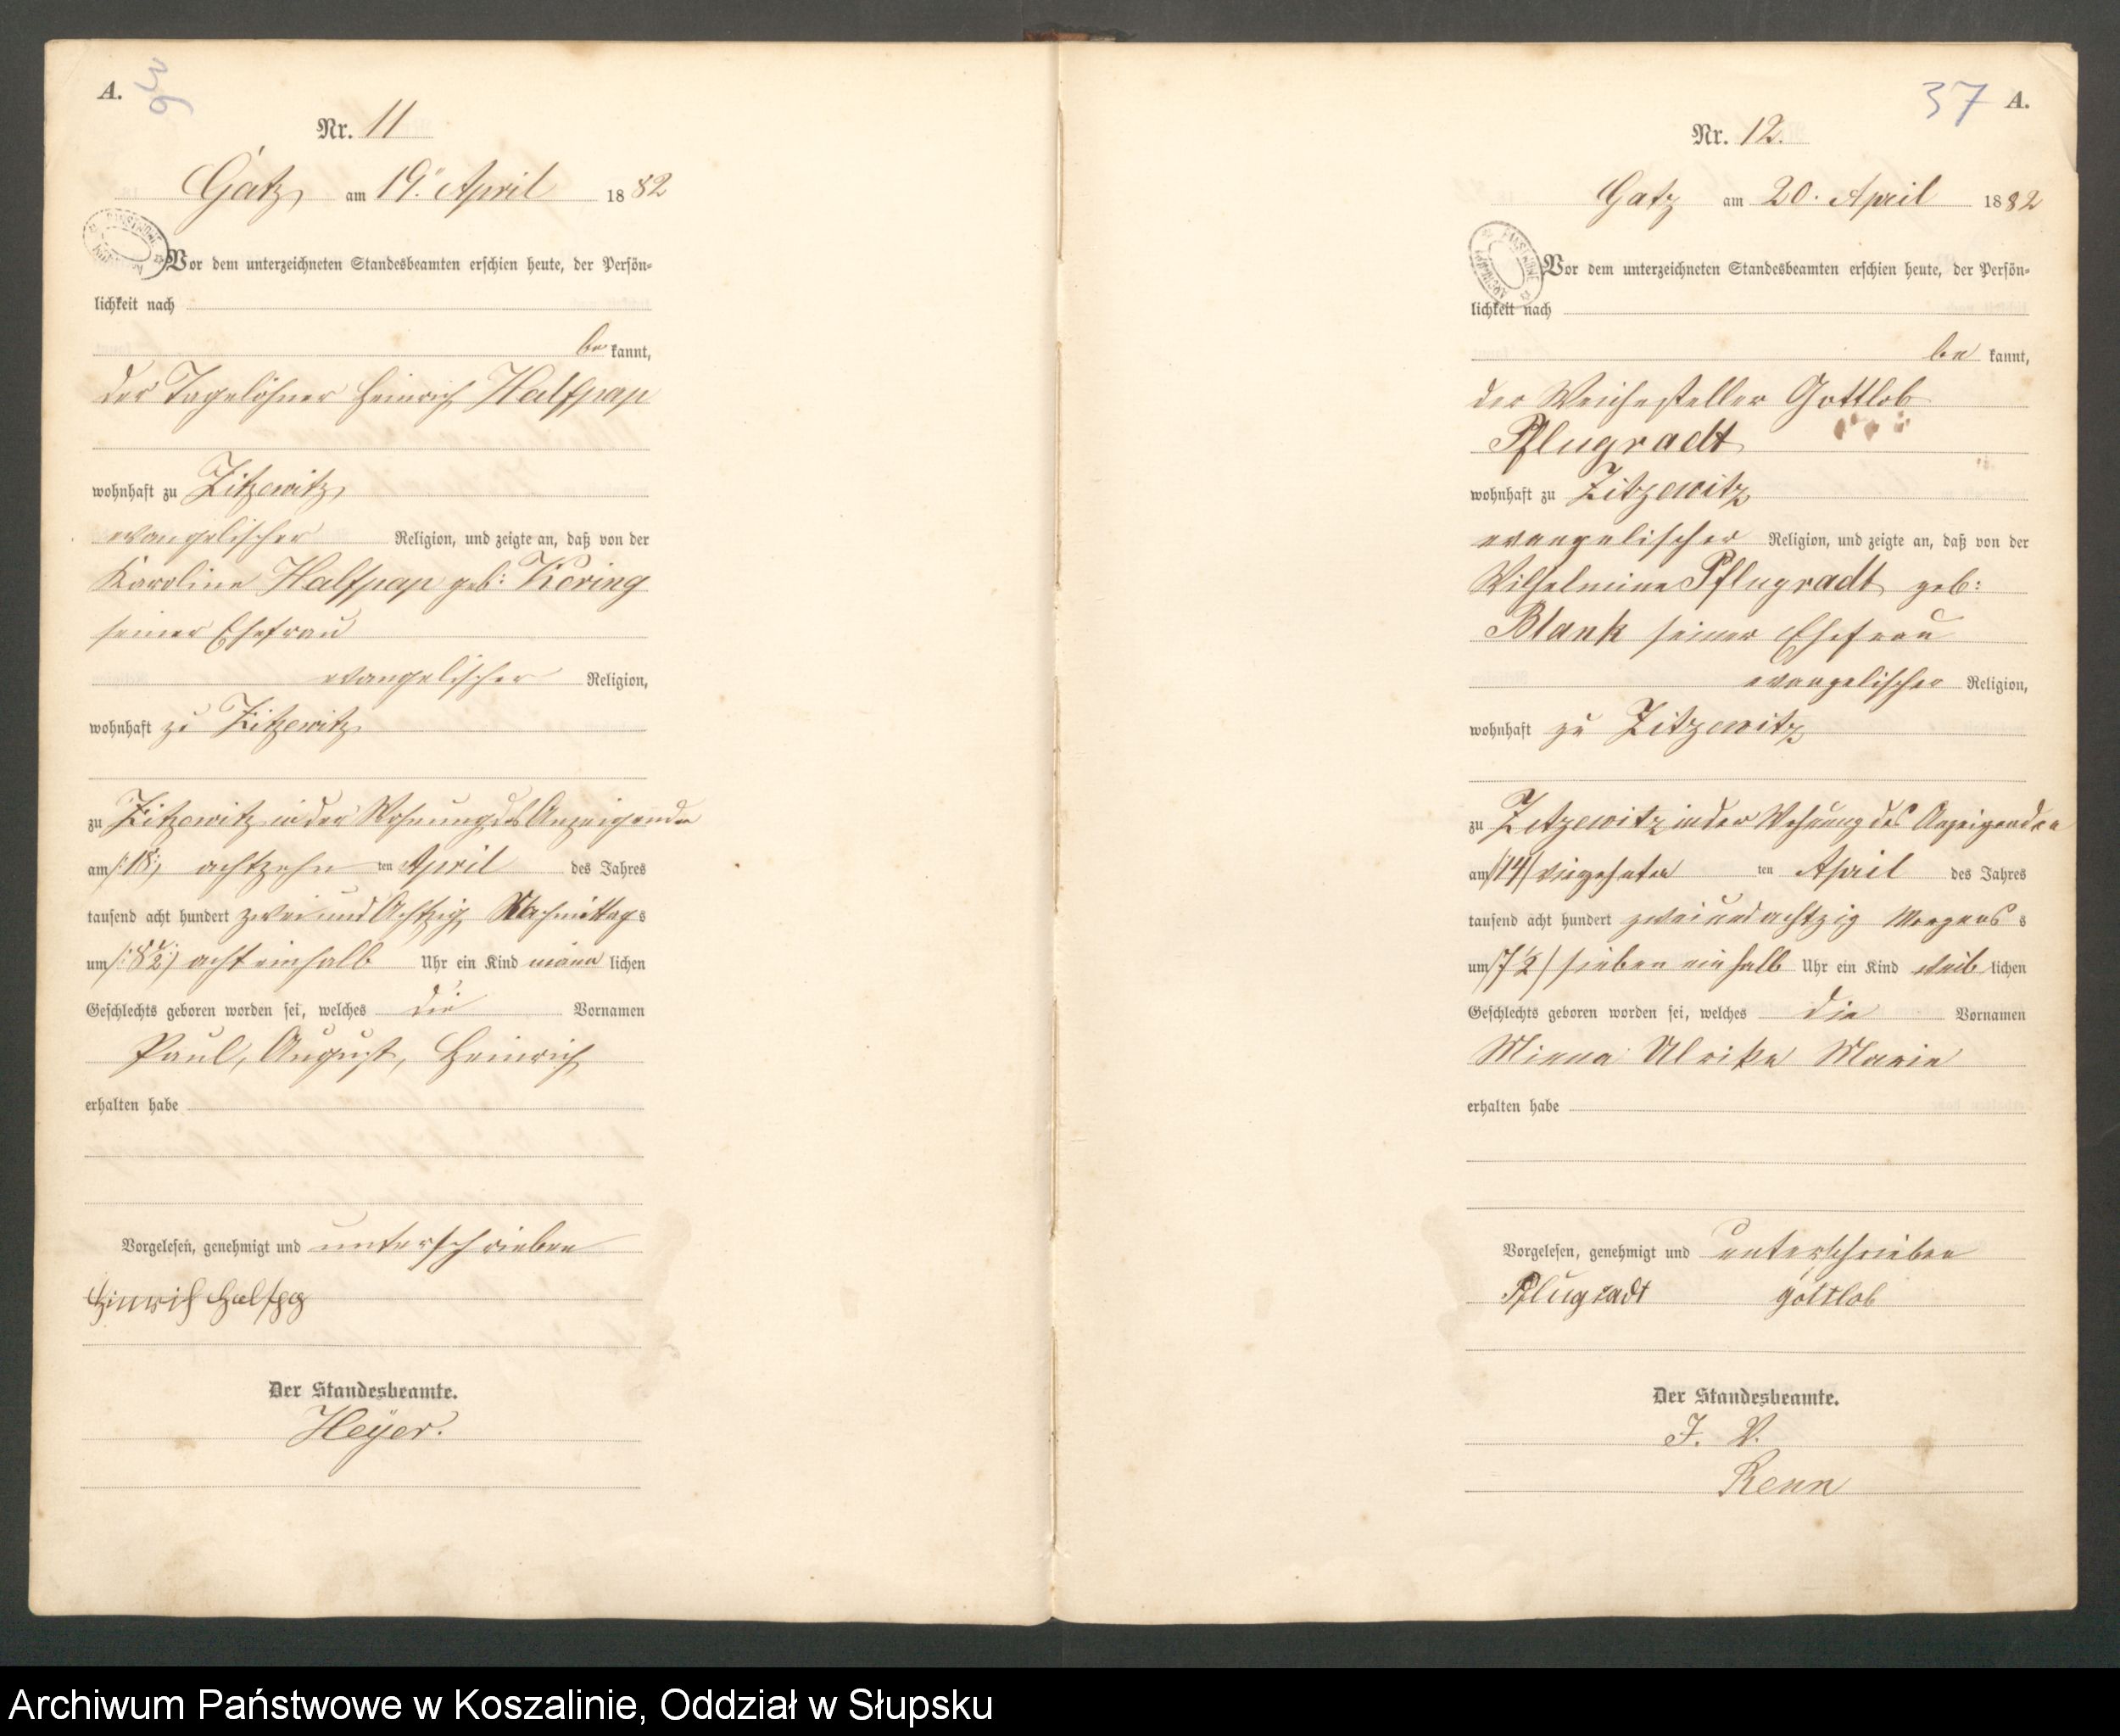 A.
36
Nr. 11
Gatz am 19. April 1882
Vor dem unterzeichneten Standesbeamten erschien heute, der Persön-
lichkeit nach
be kannt,
der Tagelöhner Heinrich Halfpap
wohnhaft zu Zitzewitz
evangelischer Religion, und zeigte an, daß von der
Karoline Halfpap geb: Köring
seiner Ehefrau
evangelischer Religion,
wohnhaft zu Zitzewitz
zu Zitzewitz in der Wohnung des Anzeigenden
am /:18:/ achtzehn ten April des Jahres
tausend acht hundert zwei und Achtzig Nachmittags
um /:8½:/ acht einhalb Uhr ein Kind männ lichen
Geschlechts geboren worden sei, welches die Vornamen
Paul, August, Heinrich
erhalten habe
Vorgelesen, genehmigt und unterschrieben
Der Standesbeamte.
Heyer.
37 A.
Nr. 12.
Gatz am 20. April 1882
Vor dem unterzeichneten Standesbeamten erschien heute, der Persön-
lichkeit nach
be kannt,
der Weichesteller Gottlob
Pflugradt
wohnhaft zu Zitzewitz
evangelischer Religion, und zeigte an, daß von der
Wilhelmine Pflugradt geb:
Blank seiner Ehefrau
evangelischer Religion,
wohnhaft zu Zitzewitz
zu Zitzewitz in der Wohnung des Anzeigenden
am /14/ vierzehnten ten April des Jahres
tausend acht hundert zwei und achtzig Morgens s
um /7½/ sieben ein halb Uhr ein Kind weib lichen
Geschlechts geboren worden sei, welches die Vornamen
Minna Ulrike Marie
erhalten habe
Vorgelesen, genehmigt und unterschrieben
Pflugradt Gottlob
Der Standesbeamte.
J. V.
Renn
Archiwum Państwowe w Koszalinie, Oddział w Słupsku